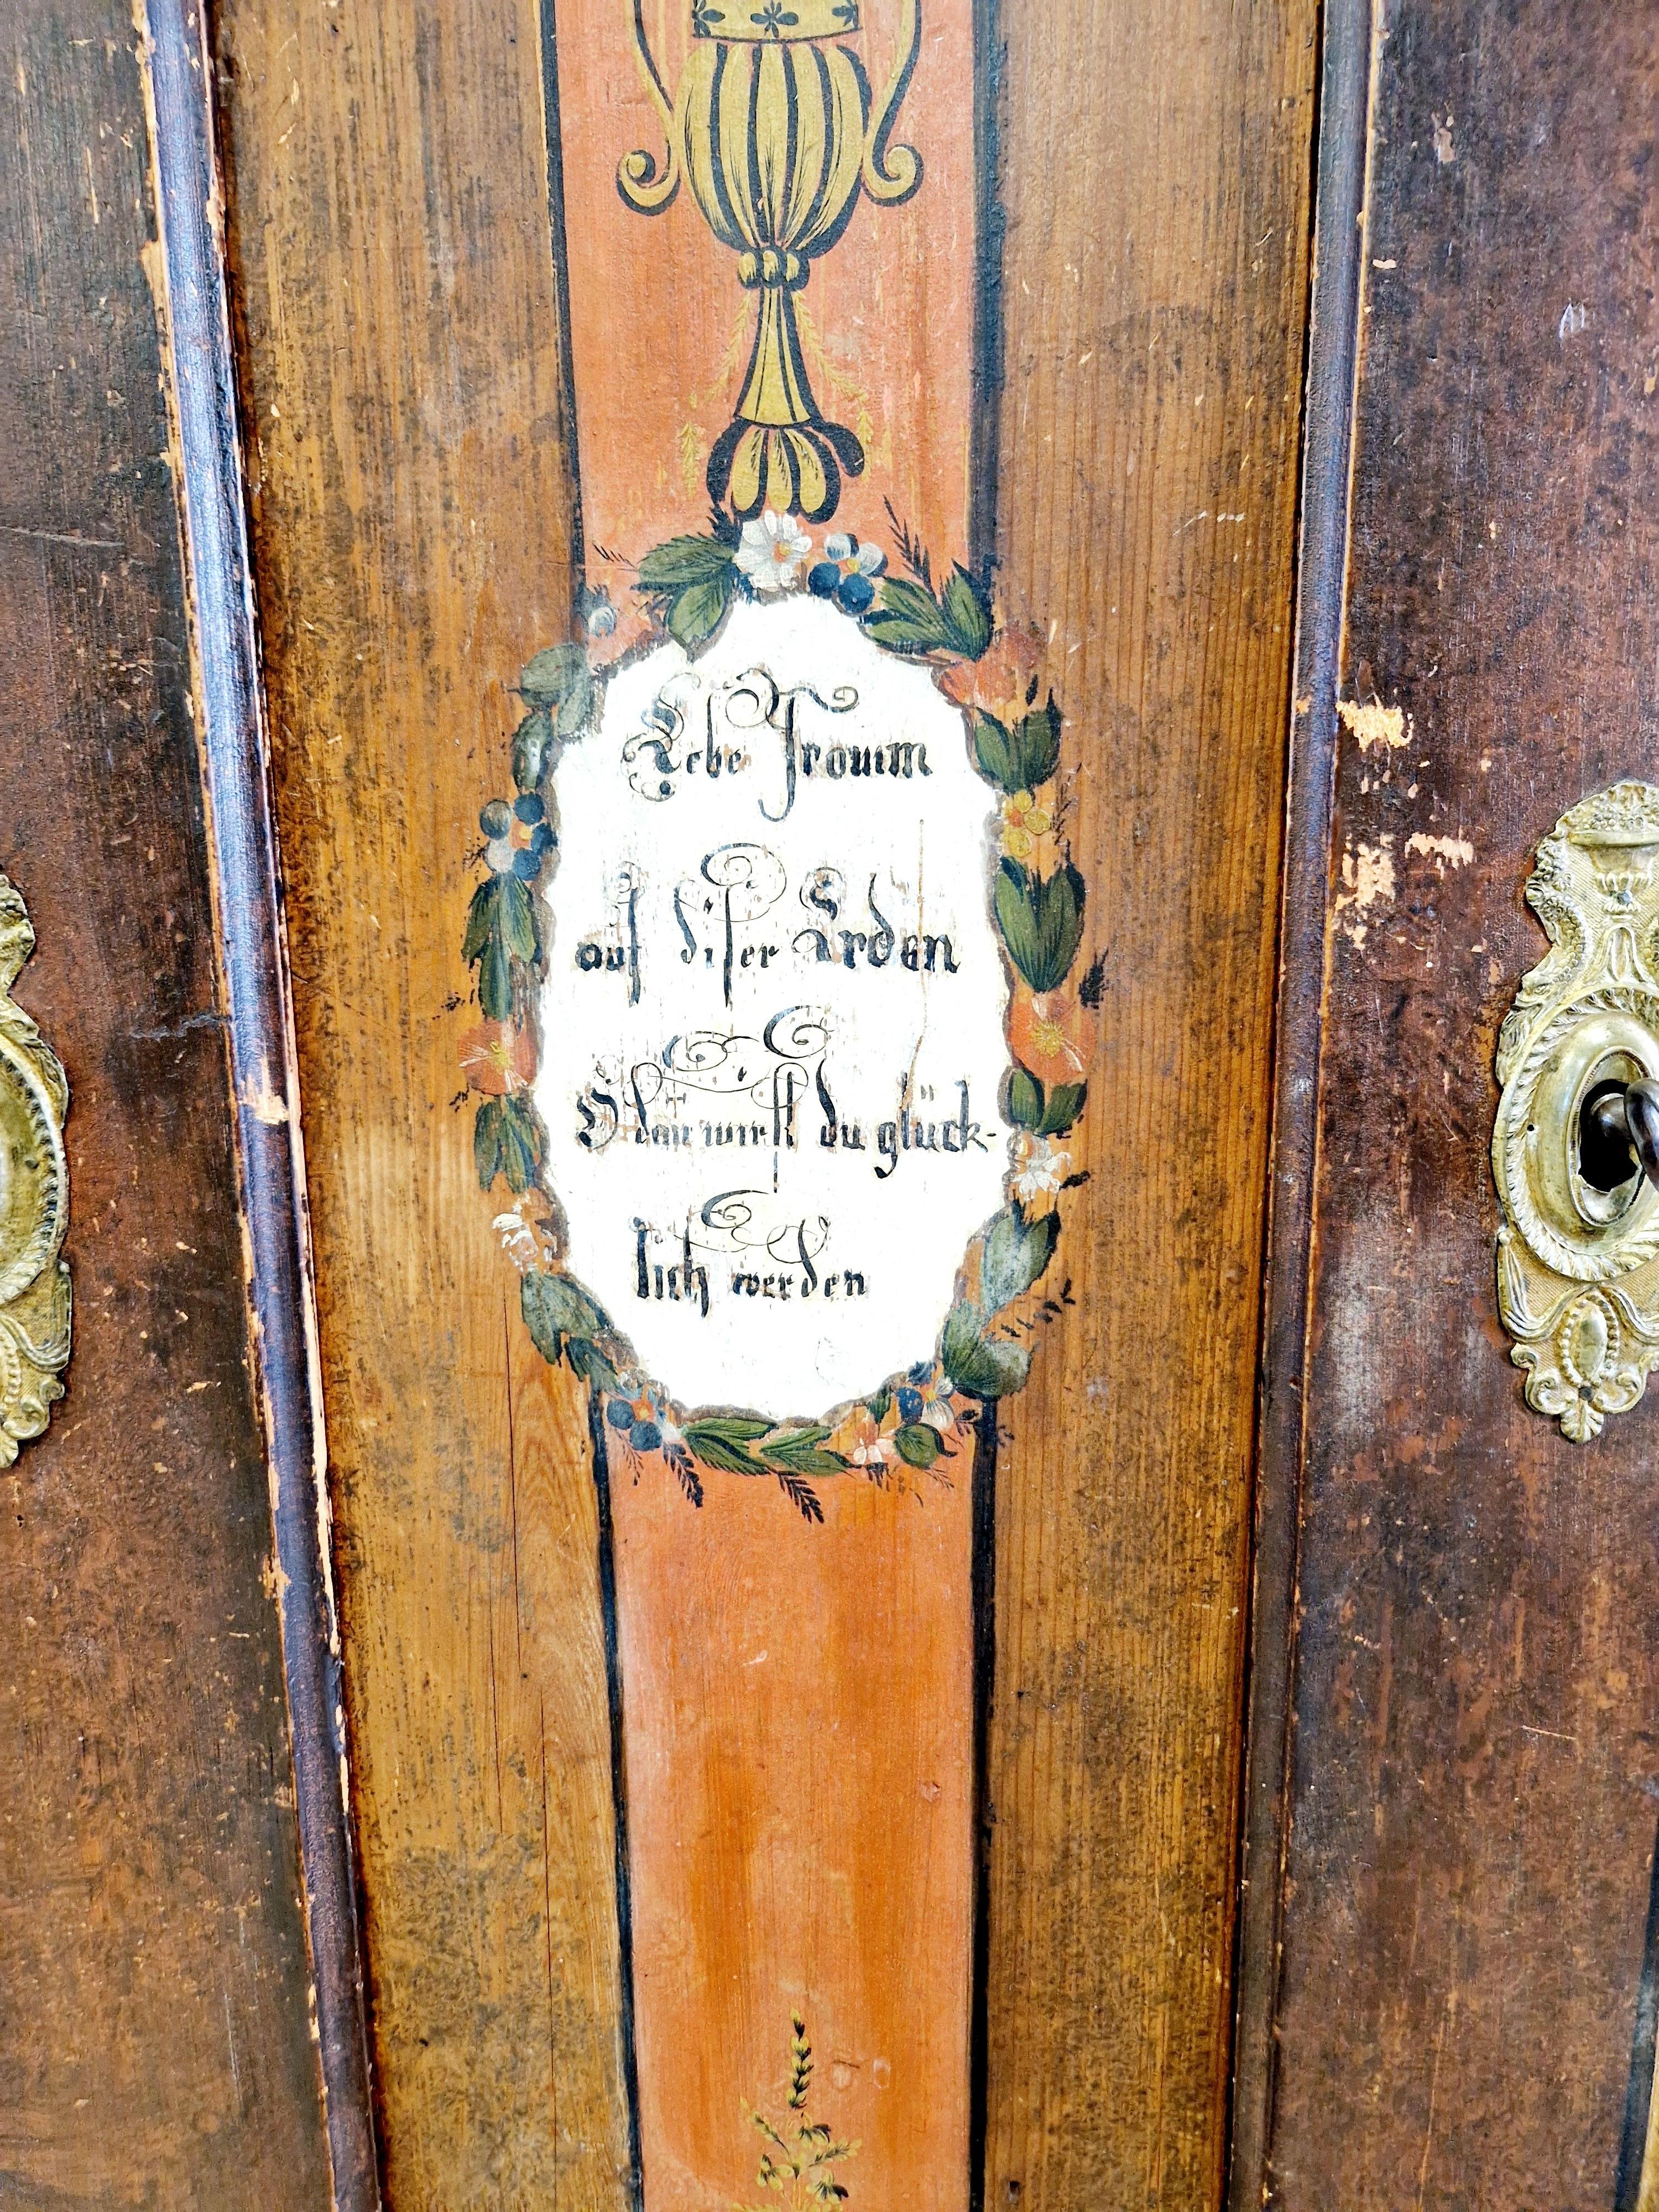 Lebe Fromm
auf diser Erden
dan̄ wirst du glück-
lich werden